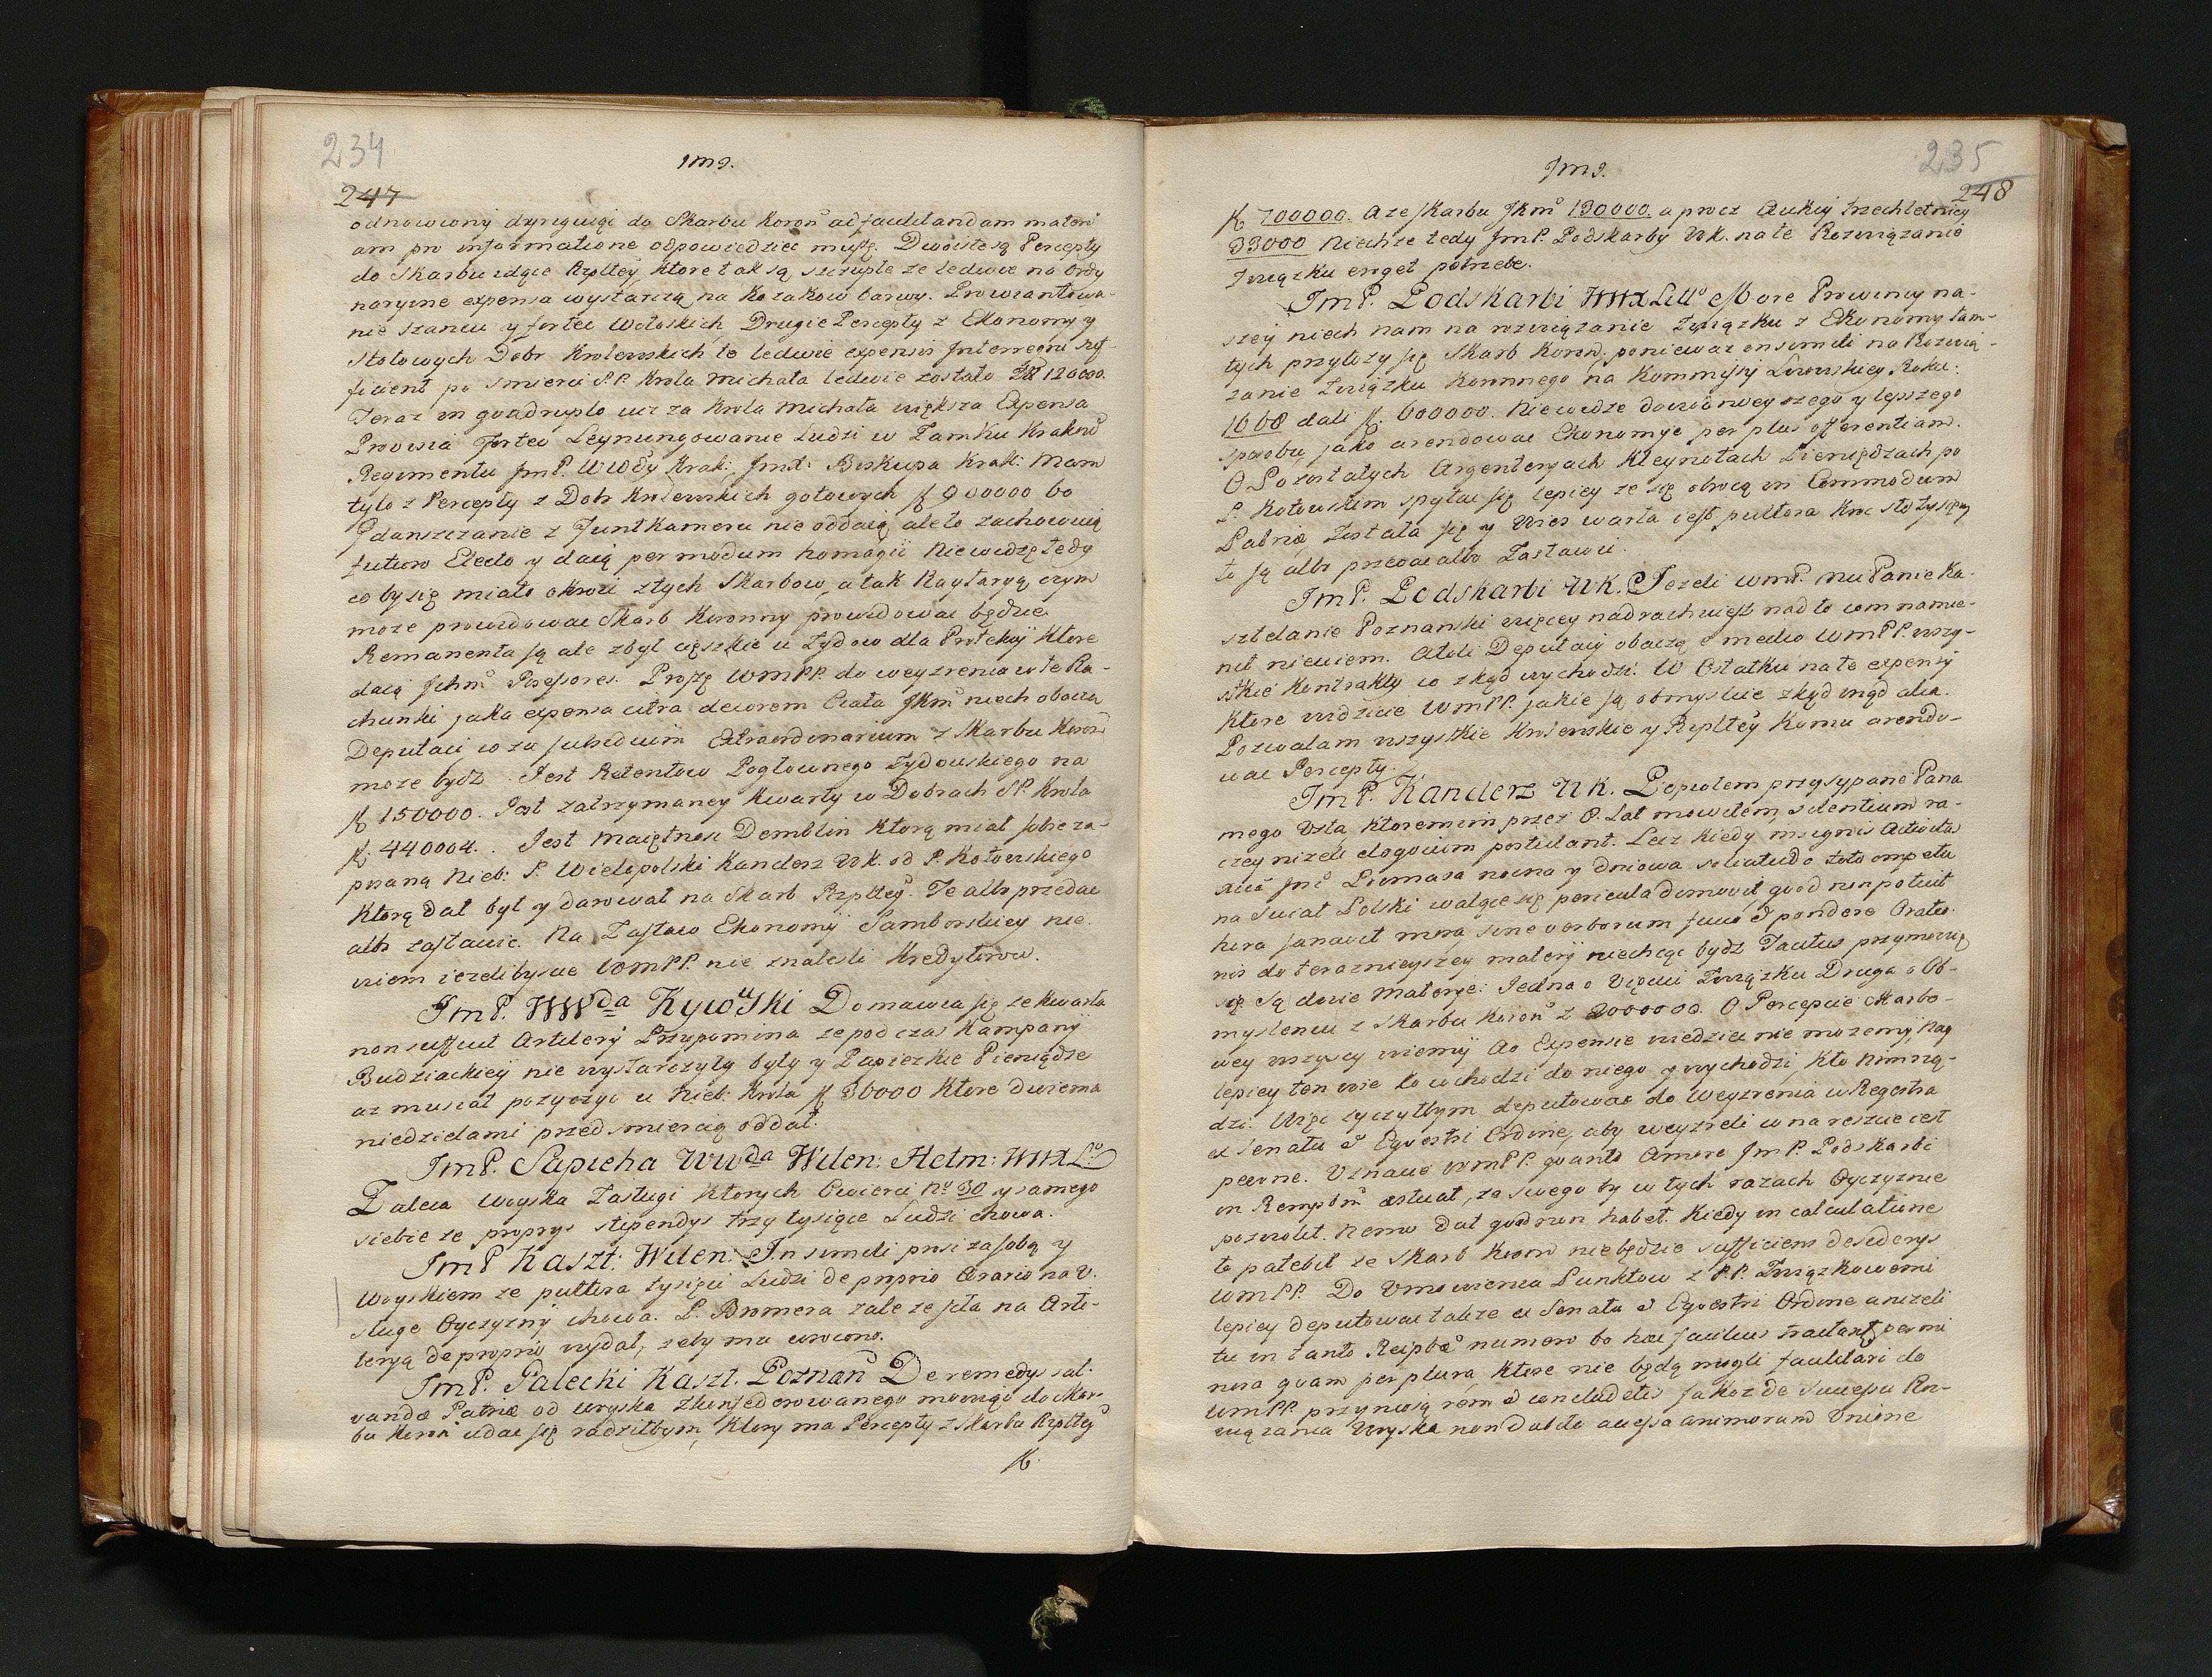 234
Im9.
247
odnowiony dyrigwigi do Skarbu Koroñ ad facilitandam materi
am pro informatione odpowiedziec muszę. Dwoiste są Percepty
do Skarbu idące Rzpltey, ktore tak są szczupłe ze ledwie na Ordy
naryine expensa wystarczą na Kozakow barwy. Prowiantowa-
nie szancu y fortec Wołoskich Drugie Percepty z Ekonomy y
Stołowych Dobr Krolewskich te ledwie expensis Interregni suf-
ficient po smierci S.P. Krola Michała ledwie zostało 120000.
Teraz in quadruplo niz za Krola Michała większa Expensa
Prowisia Fortec Leynungowanie Ludzi w Zamku Krakow
Regimentu JmP. WWdy Krak: Jmci Biskupa Krak: Mam
tylo z Percepty z Dobr Krolewskich gotowych f 900000 bo
Gdanszczanie z Funtkameru nie oddaią, ale to zachowuią
futuro Electo y daią per modum homagii Niewidzę tedy
co by się miało okroic z tych Skarbow, a tak Raytaryą czym
moze prowidowac Skarb Koronny prowidowac będzie.
Remanenta są ale zbyt cięszkie u Zydow dla Protekcyi Ktore
daią Ichmc Possessores. Proszę WMPP. do weyzrenia w te Ra-
chunki jaka expensa citra decorem Ciała JKmc niech obaczą
Deputaci co za subsidium Extraordinarium z Skarbu Koron
moze bydz. Jest Retentow Pogłownego Zydowskiego na
f 150000. Jest zatrzymaney Kwarty w Dobrach SP. Krola
f. 440004. Jest Maiętnosc Demblin Ktorą miał sobie za-
pisaną Nieb: P. Wielopolski Kanclerz WK. od P. Kotowskiego
Ktorą dał był y darował na Skarb Rzpltey. Te albo przedac
albo zastawic. Na Zastaw Ekonomii Samborskiey nie
wiem iezelibyscie WMPP. nie znalesli Kredytorow.
JmP. WWda Kyiowski Domawia się ze Kwarta
non sufficit Artilerÿ Przypomina ze pod czas Kampanÿ
Budziackiey nie wystarczyły były y Papiezkie Pieniądze
az musiał pozyczyc u Nieb: Krola f 36000 Ktore dwiema
niedzielami przed smiercią oddał.
JmP. Sapieha WWda Wilen: Hetm: WWXL
Zaleca Woyska Zasługi Ktorych Cwierci No 30 y samego
siebie ze propriis stipendys trzy tysiące Ludzi chowa.
JmP Kaszt: Wilen: Insimili prosi za sobą y
Woyskiem ze pułtora tysięci Ludzi de proprio Aerario na U.
sługe Oyczyzny chowa. P. Bromera zale ze siła na Arti-
leryą de proprio wydał, zeby mu wrocono.
JmP. Galecki Kaszt. Poznañ De remedys sal-
vandæ Patriæ od woyska skonfederowanego mowiąc do Skar-
bu Koroñ udac się radziłbym, Ktory ma Percepty z Skarbu Rzpltey
f.
235
Im9.
248
f 700000. a ze Skarbu JKmc 130000. a procz Aukcij trzechletniey
33000 Niechze tedy JmP. Podskarby WK. na te Rozwiązanie
Związku eriget potrzebe.
JmP. Podskarbi WWXLitto Ab ore Prowincy na-
szey niech nam na rozwiązanie Związku z Ekonomy tam-
tych przyłozy się Skarb Koron: poniewaz in simili na Rozwią-
zanie Związku Koronnego na Kommissÿ Lwowskiey Roku:
1668 dali f. 600000. Niewidze dowodnieyszego y lepszego
sposobu, jako arendowac Ekonomije per plus offerentiam.
O Pozostałych Argenteryach Kleynotach Pieniędzach po
P. Kotowskim spytac się lepiey ze się obrocą in Commodum
Patriæ, została się y Wies warta iest pułtora kroc sto tysięcy
te są albo przedac albo Zastawic.
JmP. Podskarbi WK. Jezeli WmP. Mci Panie Ka-
sztelanie Poznanski więcey nadrachuiesz nad to com namie-
nił niewiem. Ateli Deputaci obaczą e medio WMPP. wszy-
stkie Kontrakty co zkąd wychodzi. W Ostatku na te expensy
Ktore widzicie WMPP. jakie są obmyslcie zkąd inąd alia.
Pozwalam wszystkie Krolewskie y Rzpltey Komu arendo-
wac Percepty.
JmP. Kanclerz WK. Popiołem przysypane Pana
mego Usta, Ktoremim przez 8. Lat mowiłem, silentium ra-
czey nizeli eloquium postulant. Lecz kiedy insignis Activitas
Xcia Jmc Primasa nocna y dniowa solicitudo toto impetu
na Swiat Polski walące się pericula dimovit, quod non potuit
hora sanavit mora, sine verborum fuco et pondere Oratio-
nis do teraznieyszey materÿ niechcąc bydz Tacitus przymowię
się Są dwie Materye: Jedna o Ujęciu Związku Druga o Ob-
mysleniu z Skarbu Koroñ z 2000000. O Percepcie Skarbo-
wey wszyscy wiemy Ao Expensie wiedziec nie mozemy, Nay
lepiey ten wie to wchodzi do niego y wychodzi, Kto Nim rzą-
dzi. Więc zyczyłbym deputowac do Weyzrenia w Regestra
ex Senatu et Equestri Ordine, aby weyzreli co na reszcie iest
pewne. Uznacie WMPP. quanto Amore JmP. Podskarbi
in Remptm æstuat, ze swego by w tych razach Oyczyznie
pozwolił. Nemo dat quod non habet. Kiedy in calculatione
to patebit ze Skarb Koron nie będzie sufficiens desiderys
WMPP. Do Umowienia Punktow z PP. Związkowemi
lepiey deputowac takze ex Senatu et Equestri Ordine anizeli
tu in tanto Reipbcæ numero bo hac facilius tractant, per mi
nora quam per plura, Ktore nie będą mogli facilitari do
WMPP. przyniosą rem et concludetis Jakoz de Successu Roz-
wiązania Woyska non Dubito accessa animorum Unione